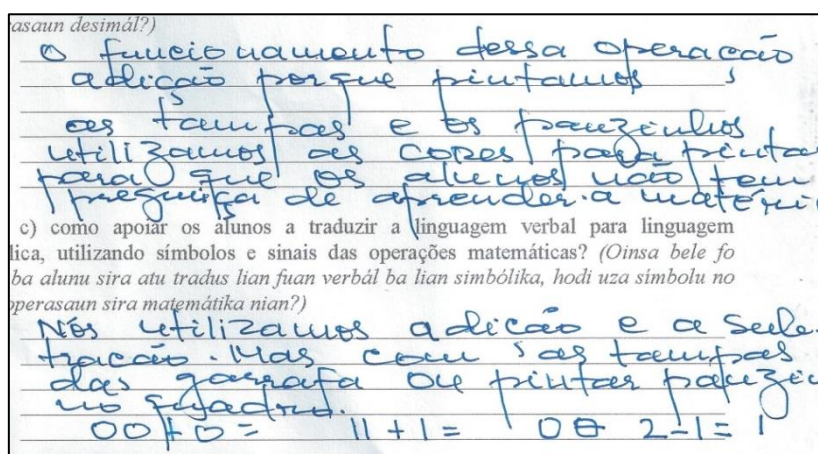 asaun desimál?)
O funcionamento dessa operação
adição porque pintamos
as tampas e os pauzinhos
utilizamos as cores para pintar
para que os alunos não tem
preguiça de aprender a matéri
c) como apoiar os alunos a traduzir a linguagem verbal para linguagem
lica, utilizando símbolos e sinais das operações matemáticas? (Oinsa bele fo
ba alunu sira atu tradus lian fuan verbál ba lian simbólika, hodi uza símbolu no
operasaun sira matemátika nian?)
Nós utilizamos adicão e a sub
tração. Mas com as tampas
das garrafa ou pintar pauzi
no quadro.
00+0= 11+1= 2-1=1